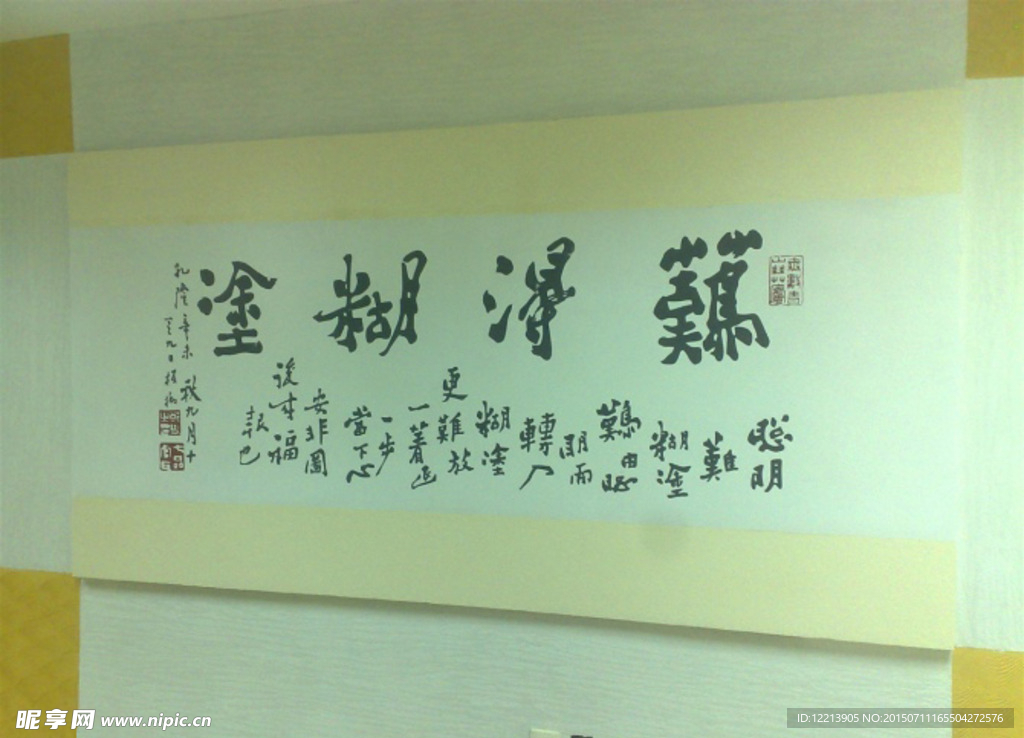 難得糊塗
聰明
難
糊塗
難由聰
明而
轉入
糊塗
更難放
一著退
一步
當下心
安非圖
後來福
報也
乾隆辛未秋九月十
又九日板橋
昵享网 www.nipic.cn
ID:12213905 NO:20150711165504272576